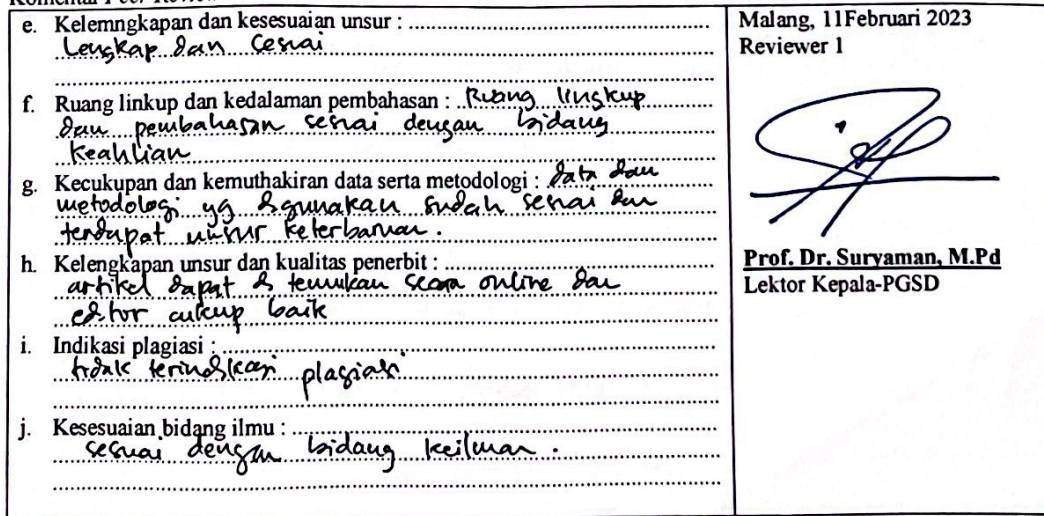 Komentar Peer Review
e. Kelemngkapan dan kesesuaian unsur :
Lengkap dan sesuai
f. Ruang linkup dan kedalaman pembahasan : Ruang lingkup
dan pembahasan sesuai dengan bidang
keahlian
g. Kecukupan dan kemuthakiran data serta metodologi : data dan
metodologi yg digunakan sudah sesuai dan
terdapat unsur keterbaruan.
h. Kelengkapan unsur dan kualitas penerbit :
artikel dapat di temukan secara online dan
editor cukup baik
i. Indikasi plagiasi :
tidak terindikasi plagiasi
j. Kesesuaian bidang ilmu :
sesuai dengan bidang keilmuan.
Malang, 11Februari 2023
Reviewer 1
Prof. Dr. Suryaman, M.Pd
Lektor Kepala-PGSD